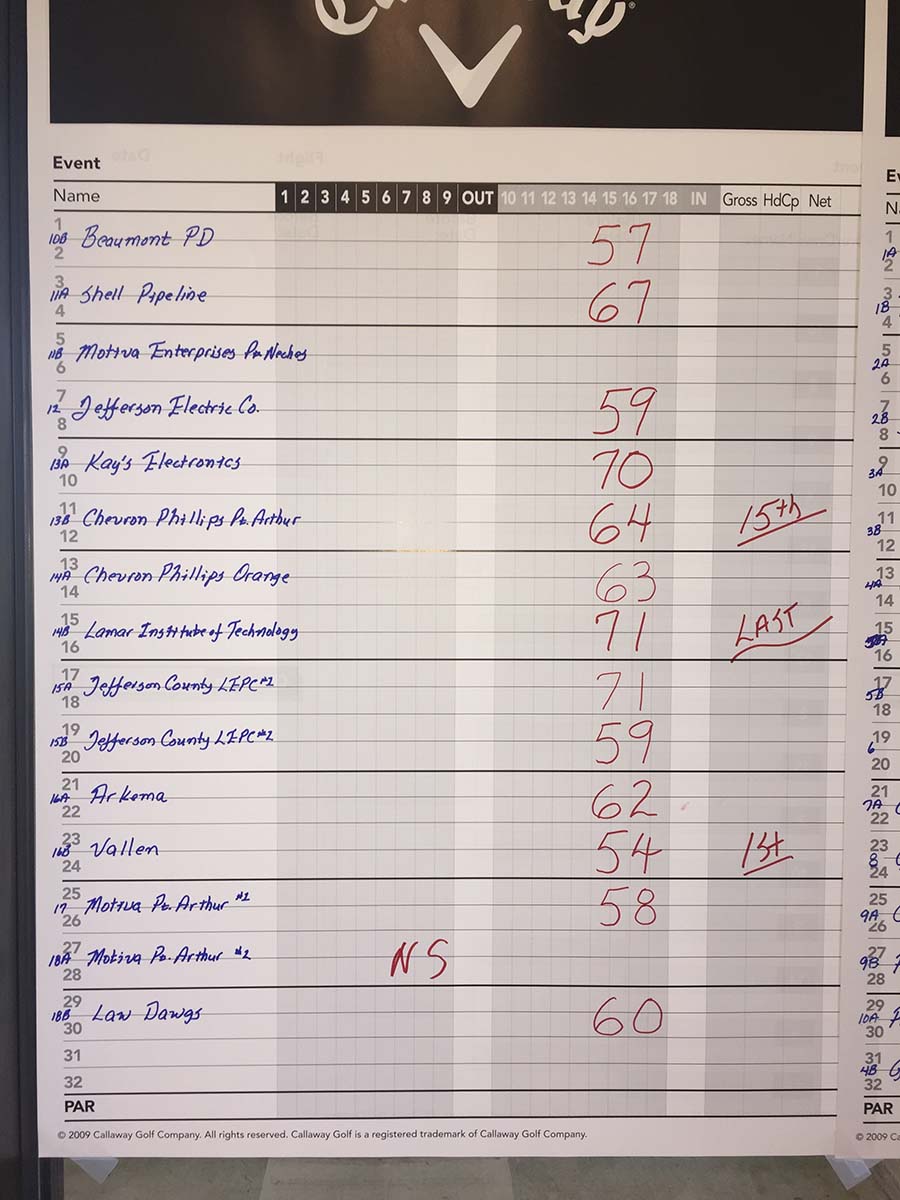 Callaway
Event
Name 1 2 3 4 5 6 7 8 9 OUT 10 11 12 13 14 15 16 17 18 IN Gross HdCp Net
1
10B Beaumont PD 57
2
3
11A Shell Pipeline 67
4
5
11B Motiva Enterprises Pt. Neches
6
7
12 Jefferson Electric Co. 59
8
9
13A Kay's Electronics 70
10
11
13B Chevron Phillips Pt. Arthur 64 15th
12
13
14A Chevron Phillips Orange 63
14
15
14B Lamar Institute of Technology 71 LAST
16
17
15A Jefferson County LEPC #1 71
18
19
15B Jefferson County LEPC #2 59
20
21
16A Arkema 62
22
23
16B Vallen 54 1st
24
25
17 Motiva Pt. Arthur #1 58
26
27
18A Motiva Pt. Arthur #2 NS
28
29
18B Law Dawgs 60
30
31
32
PAR
© 2009 Callaway Golf Company. All rights reserved. Callaway Golf is a registered trademark of Callaway Golf Company.
1
1A
2
3
1B
4
5
2A
6
7
2B
8
9
3A
10
11
3B
12
13
4A
14
15
16
17
5B
18
19
6
20
21
7A
22
23
8
24
25
9A
26
27
9B
28
29
10A
30
31
4B
32
PAR
© 2009 C